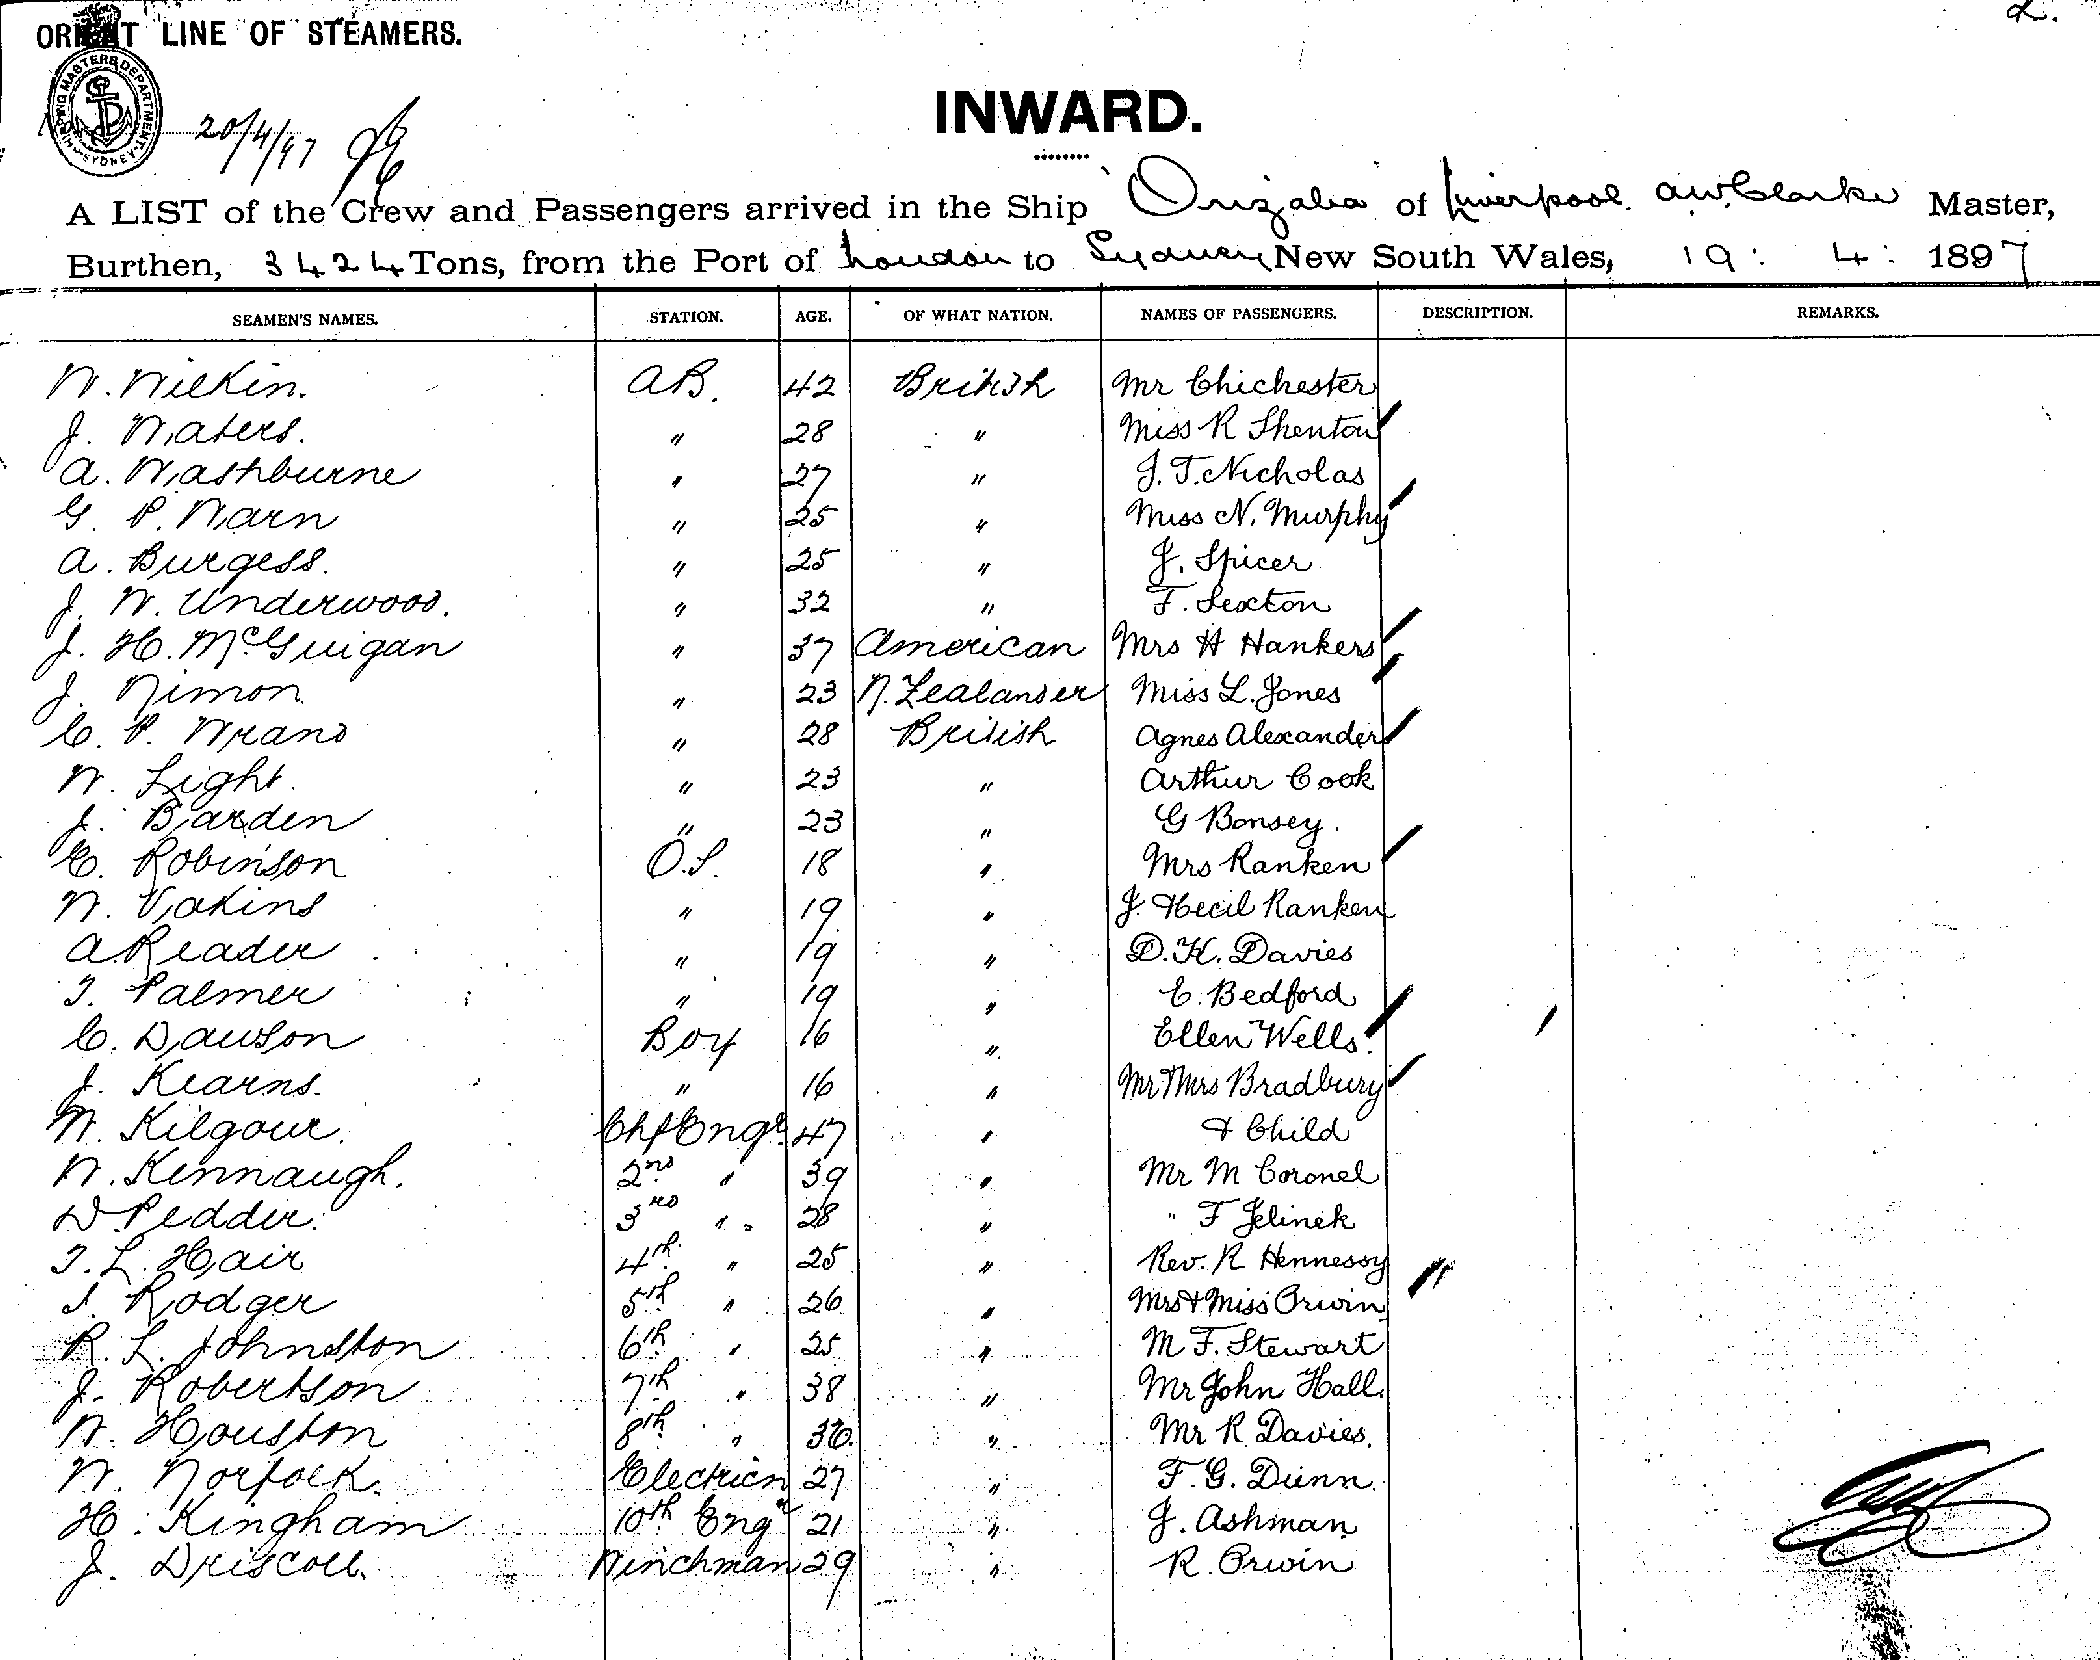 2.
ORIENT LINE OF STEAMERS.
SHIPPING MASTERS DEPARTMENT SYDNEY
20/4/97
INWARD.
A LIST of the Crew and Passengers arrived in the Ship Orizaba of Liverpool. A.W. Clarke Master,
Burthen, 3424 Tons, from the Port of London to Sydney New South Wales, 19: 4: 1897
SEAMEN'S NAMES. STATION. AGE. OF WHAT NATION. NAMES OF PASSENGERS. DESCRIPTION. REMARKS.
W. Wilkin. AB. 42 British Mr Chichester
J. Waters. " 28 " Miss R Shenton
A. Washburne " 27 " J. T. Nicholas
G. P. Warn " 25 " Miss N. Murphy
A. Burgess. " 25 " J. Spicer
J. W. Underwood. " 32 " F. Sexton
J. H. McGuigan " 37 American Mrs H Hankers
J. Nimon " 23 N. Zealander Miss L. Jones
C. P. Wrand " 28 British Agnes Alexander
W. Light. " 23 " Arthur Cook
J. Barden " 23 " G Bonsey.
E. Robinson O.S. 18 " Mrs Ranken
W. Vakins " 19 " J. Hecil Ranken
A Reader " 19 " D. H. Davies
T. Palmer " 19 " C. Bedford
C. Dawson Boy 16 " Ellen Wells.
J. Kearns. " 16 " Mr & Mrs Bradbury
W. Kilgour. Chf Engr 47 " & Child
W. Kennaugh. 2nd " 39 " Mr M Coronel
D Pedder. 3rd " 28 " " F Jelinek
T. L. Hair 4th " 25 " Rev. R Hennessy
J. Rodger 5th " 26 " Mrs & Miss Orwin
R. L. Johnston 6th " 25 " M F. Stewart
J. Robertson 7th " 38 " Mr John Hall.
W. Houston 8th " 36. " Mr R. Davies.
W. Norfolk. Electricn 27 " F. G. Dunn.
H. Kingham 10th Engr 21 " J. Ashman
J. Driscoll. Winchman 29 " R. Orwin